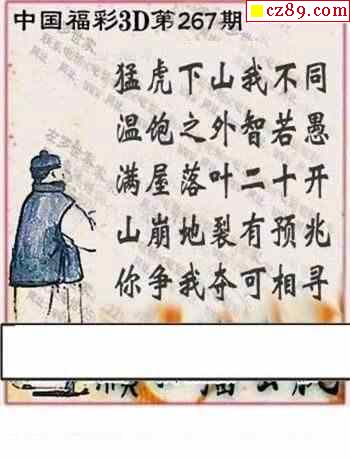 cz89.com
中国福彩3D第267期
猛虎下山我不同
温饱之外智若愚
满屋落叶二十开
山崩地裂有预兆
你争我夺可相寻